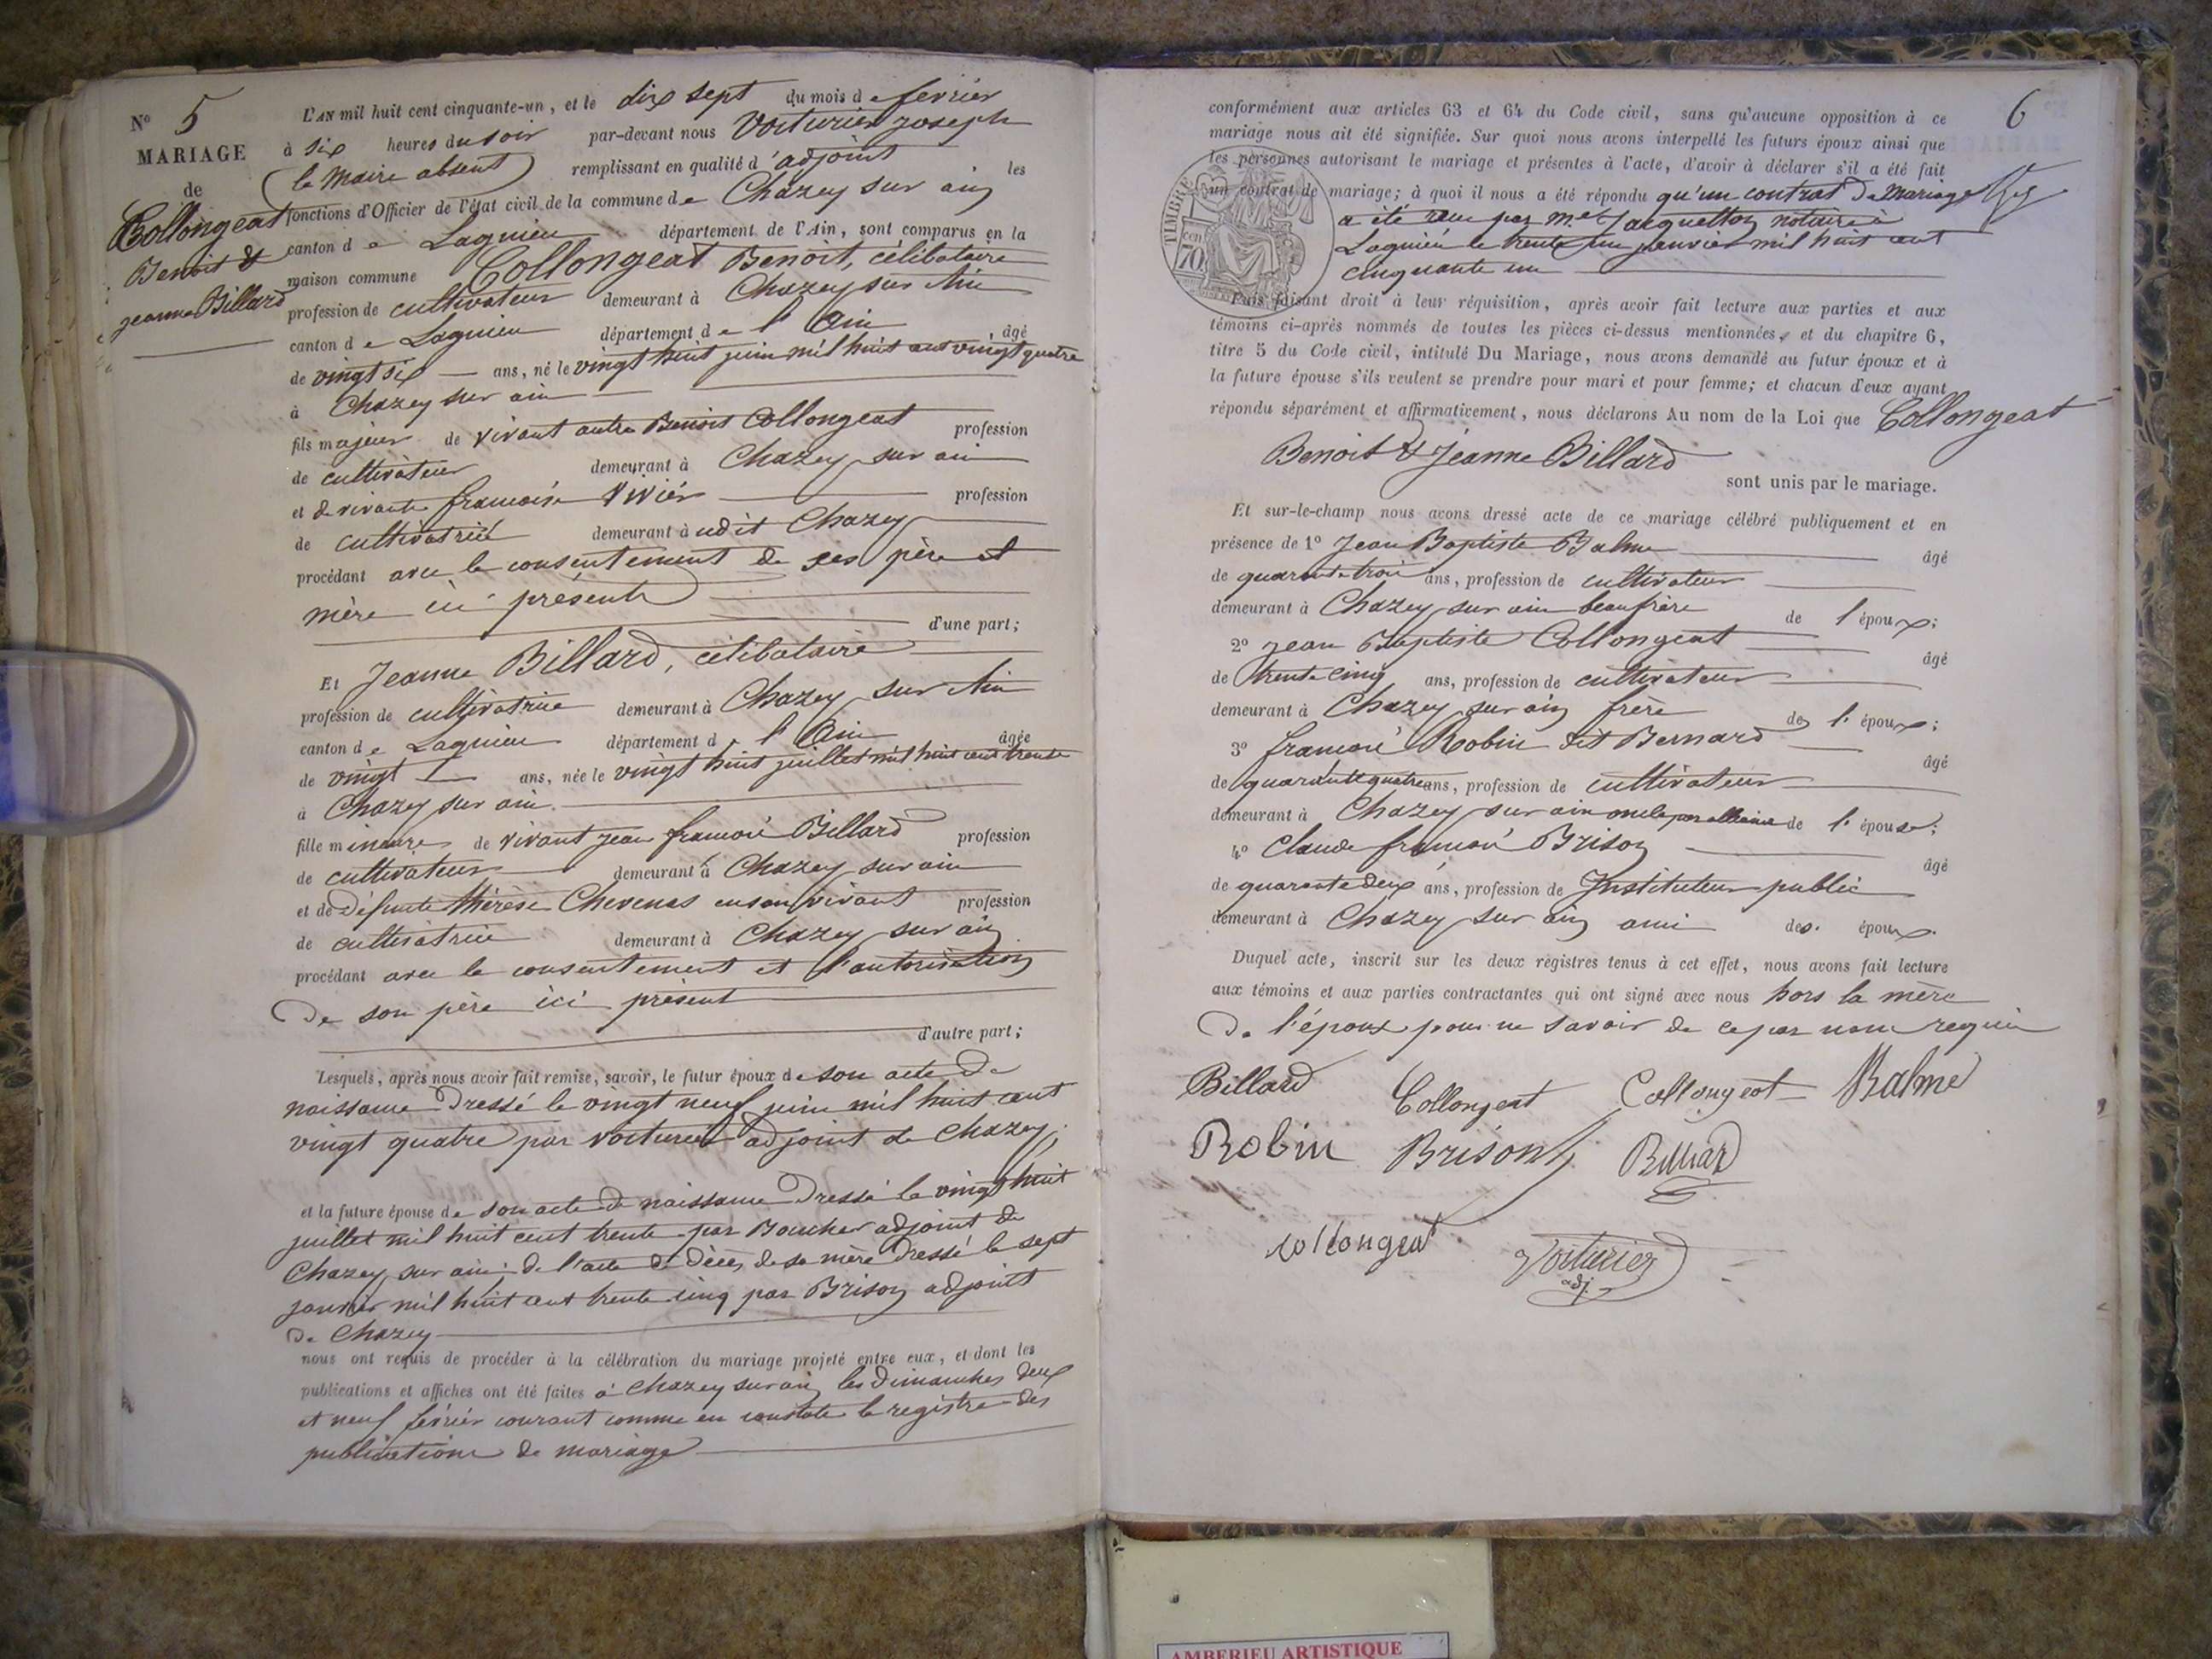 N° 5
MARIAGE
de
Collongeat
Benoit &
Jeanne Billard
L'AN mil huit cent cinquante-un, et le dix sept du mois de février
à six heures du soir par-devant nous Voiturier Joseph
(le Maire absent) remplissant en qualité d'adjoint les
fonctions d'Officier de l'état civil de la commune de Chazey sur ain
canton de Lagnieu département de l'Ain, sont comparus en la
maison commune Collongeat Benoit, célibataire
profession de cultivateur demeurant à Chazey sur Ain
canton de Lagnieu département de l'Ain, âgé
de vingt six ans, né le vingt huit juin mil huit cent vingt quatre
à Chazey sur ain
fils majeur de vivant autre Benoit Collongeat profession
de cultivateur demeurant à Chazey sur ain
et de vivante françoise Vivier profession
de cultivatrice demeurant à udit Chazey
procédant avec le consentement de ses père et
mère ici présents
d'une part;
Et Jeanne Billard, célibataire
profession de cultivatrice demeurant à Chazey sur Ain
canton de Lagnieu département d l'Ain âgée
de vingt ans, née le vingt huit juillet mil huit cent trente
à Chazey sur ain
fille mineure de vivant jean françois Billard profession
de cultivateur demeurant à Chazey sur ain
et de défunte thérèse Chevenas en son vivant profession
de cultivatrice demeurant à Chazey sur ain
procédant avec le consentement et l'autorisation
de son père ici présent
d'autre part;
Lesquels, après nous avoir fait remise, savoir, le futur époux de son acte de
naissance dressé le vingt neuf juin mil huit cent
vingt quatre par Voiturier adjoint de Chazey;
et la future épouse de son acte de naissance dressé le vingt huit
juillet mil huit cent trente par Boucher adjoint de
Chazey sur ain; de l'acte de décès de sa mère dressé le sept
janvier mil huit cent trente cinq par Brison adjoint
de Chazey
nous ont requis de procéder à la célébration du mariage projeté entre eux, et dont les
publications et affiches ont été faites à Chazey sur ain les dimanches deux
et neuf février courant comme en constate le registre des
publications de mariage
6
conformément aux articles 63 et 64 du Code civil, sans qu'aucune opposition à ce
mariage nous ait été signifiée. Sur quoi nous avons interpellé les futurs époux ainsi que
les personnes autorisant le mariage et présentes à l'acte, d'avoir à déclarer s'il a été fait
un contrat de mariage; à quoi il nous a été répondu qu'un contrat de mariage
a été reçu par me Jacquetton notaire à
Lagnieu le trente un janvier mil huit cent
cinquante un
TIMBRE
70
Puis faisant droit à leur réquisition, après avoir fait lecture aux parties et aux
témoins ci-après nommés de toutes les pièces ci-dessus mentionnées, et du chapitre 6,
titre 5 du Code civil, intitulé Du Mariage, nous avons demandé au futur époux et à
la future épouse s'ils veulent se prendre pour mari et pour femme; et chacun d'eux ayant
répondu séparément et affirmativement, nous déclarons Au nom de la Loi que Collongeat
Benoit & Jeanne Billard
sont unis par le mariage.
Et sur-le-champ nous avons dressé acte de ce mariage célébré publiquement et en
présence de 1° Jean Baptiste Balme âgé
de quarante trois ans, profession de cultivateur
demeurant à Chazey sur ain beaufrère de l'époux;
2° jean Baptiste Collongeat âgé
de trente cinq ans, profession de cultivateur
demeurant à Chazey sur ain frère de l'époux;
3° françois Robin dit Bernard âgé
de quarante quatre ans, profession de cultivateur
demeurant à Chazey sur ain oncle par alliance de l'épouse;
4° Claude françois Brison âgé
de quarante deux ans, profession de Instituteur public
demeurant à Chazey sur ain ami des époux.
Duquel acte, inscrit sur les deux registres tenus à cet effet, nous avons fait lecture
aux témoins et aux parties contractantes qui ont signé avec nous hors la mère
de l'époux pour ne savoir de ce par nous requise
Billard Collongeat Collongeat Balme
Robin Brison Billiard
collongeat Voiturier
adj.
AMBERIEU ARTISTIQUE